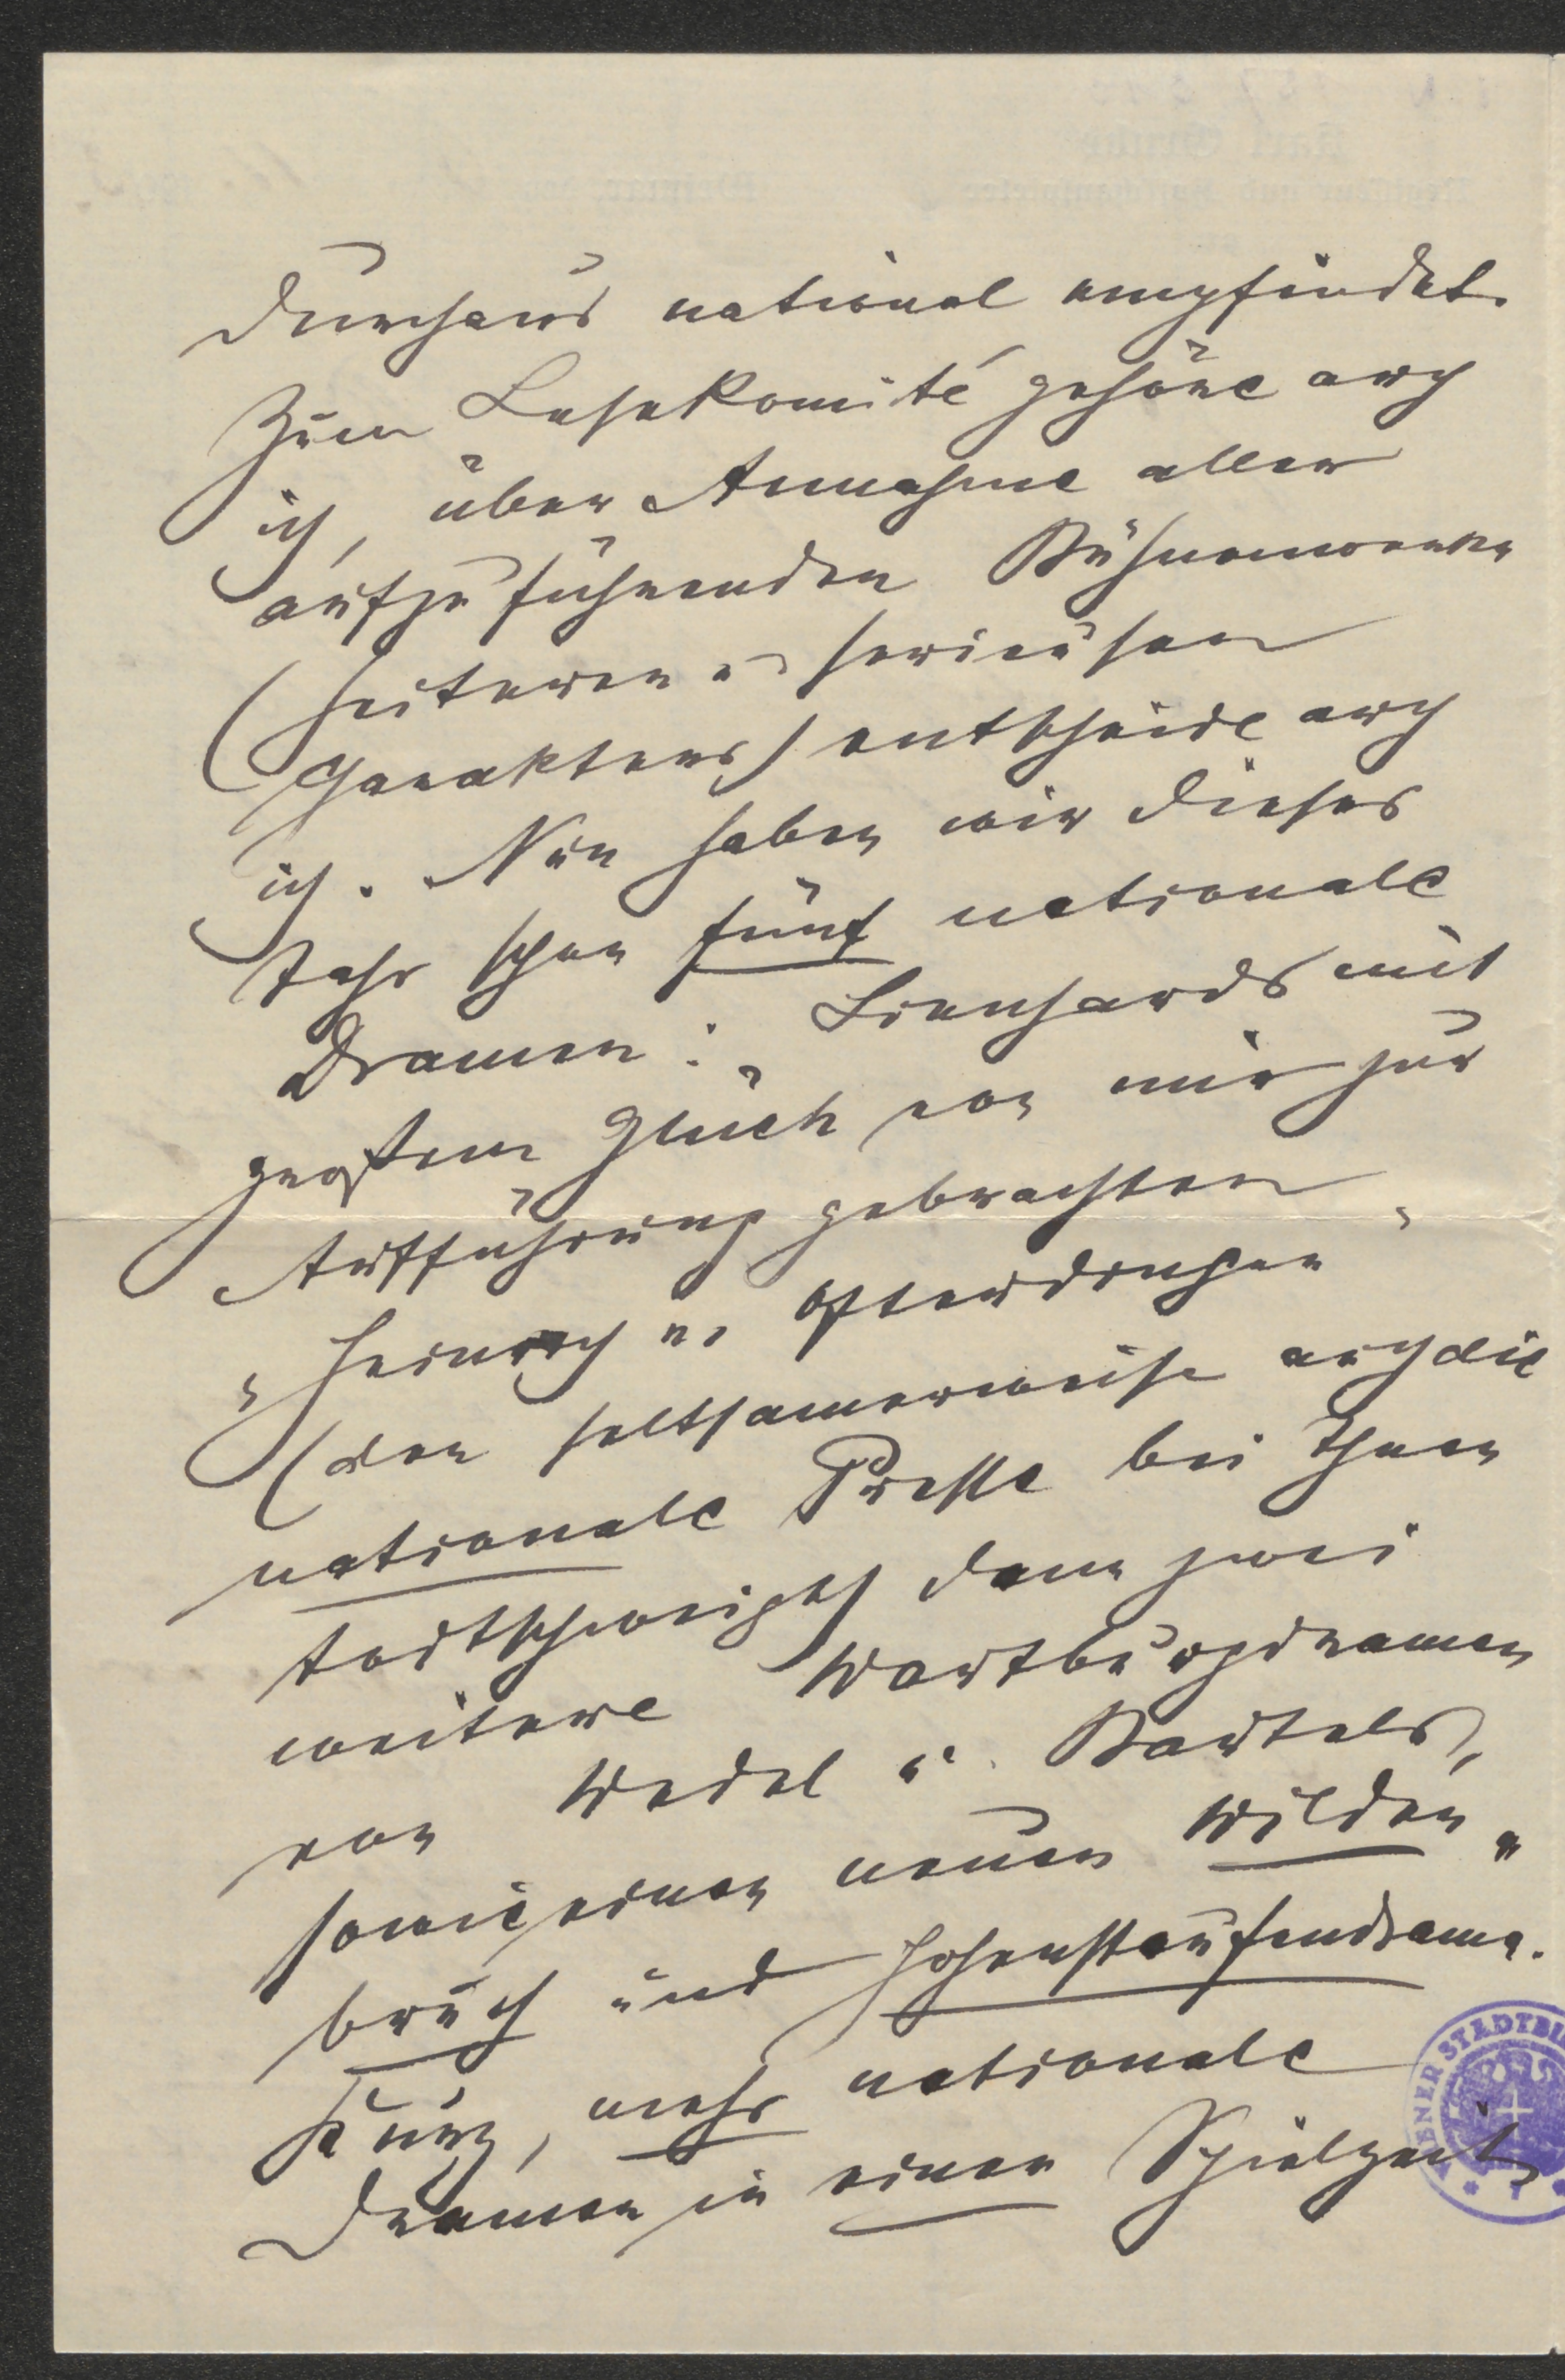 durchaus national empfindet.
Zum Lesekomité gehöre auch
ich, über Annahme aller
aufzuführenden Bühnenwerke
(heiteren u seriösen
Charakters) entscheide auch
ich. Nun haben wir dieses
Jahr schon fünf nationale
Dramen: Lienhards mit
großem Glück von mir zur
Aufführung gebrachten
„Heinrich v. Ofterdingen"
(den seltsamerweise auch die
nationale Presse bei Ihnen
todtschweigt) dann zwei
weitere Wartburgdramen
von Wedel u. Bartels,
sowie einen neuen Wilden-
bruch und Hohenstaufendrama.
Kurz, mehr nationale
Dramen in einer Spielzeit
WIENER STADTBI